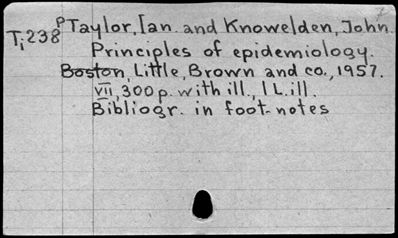 P Taylor, Ian. and Knowelden, John.
Ti238
Principles of epidemiology.
Boston, Little, Brown and co., 1957.
VII, 300 p. with ill., 1 L. ill.
Bibliogr. in foot-notes